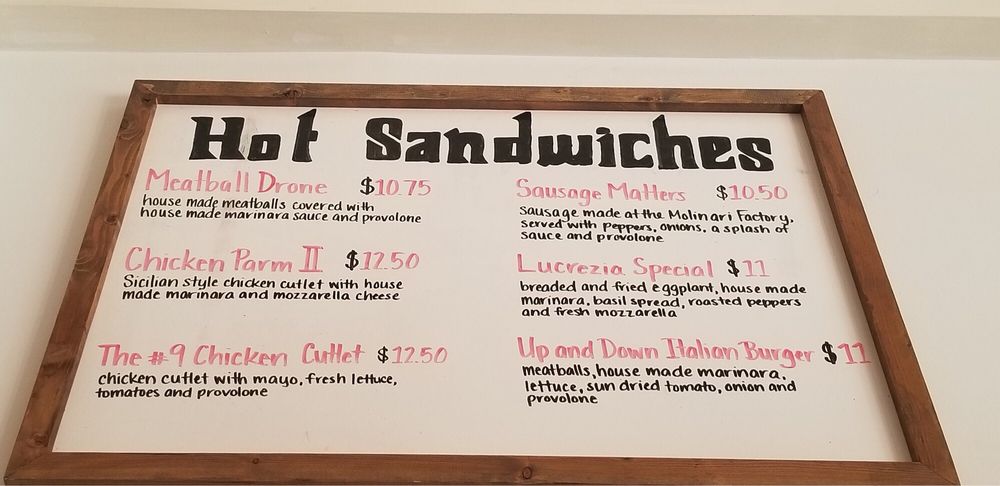 Hot Sandwiches
Meatball Drone $10.75
house made meatballs covered with
house made marinara sauce and provolone
Chicken Parm II $12.50
Sicilian style chicken cutlet with house
made marinara and mozzarella cheese
The #9 Chicken Cutlet $12.50
chicken cutlet with mayo, fresh lettuce,
tomatoes and provolone
Sausage Matters $10.50
Sausage made at the Molinari Factory,
served with peppers, onions, a splash of
sauce and provolone
Lucrezia Special $11
breaded and fried eggplant, house made
marinara, basil spread, roasted peppers
and fresh mozzarella
Up and Down Italian Burger $11
meatballs, house made marinara,
lettuce, sun dried tomato, onion and
provolone